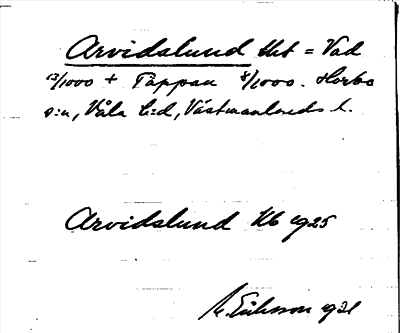 Arvidslund Hb = Vad
13/1000 + Tappan 8/1000. Horbo
s:n, Våla h:d, Västmanlands l.
Arvidslund Hb 1925
Eriksson 1931